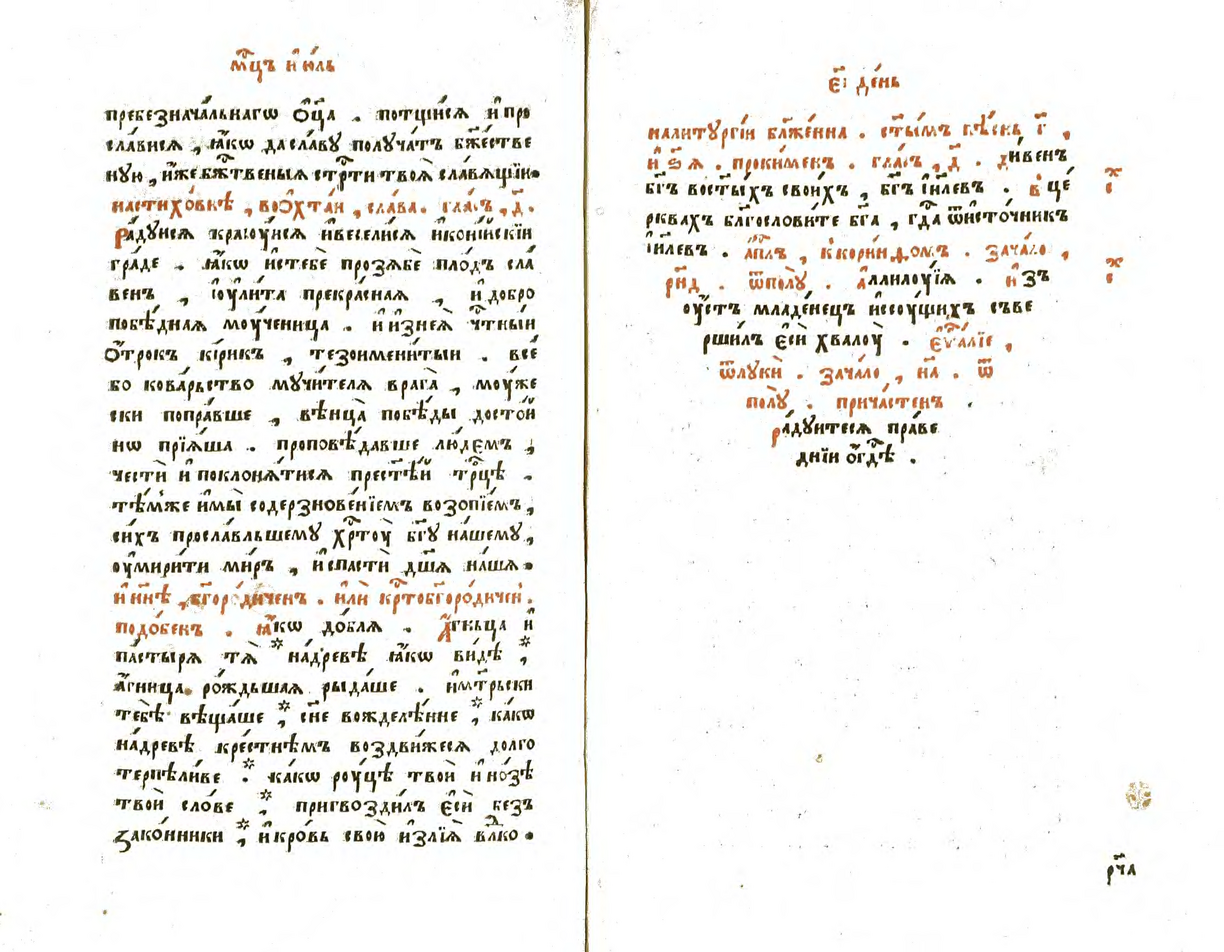 мⷭ҇цъ и҆ю́ль
пребезнача́льнагѡ ѻ҆ц҃а̀ . потщи́исѧ и҆про
сла́висѧ , ꙗ҆́кѡ даславу̀ получа́тъ бж҃е́стве
ную , и҆́же бжⷭ҇твеныѧ стрⷭ҇ти твоѧ̀ сла́вѧщїи .
настихо́внѣ , воѻхта́и , сла́ва . гла́съ , д҃ .
ра́дуисѧ красу́исѧ и҆весели́сѧ и҆кони́искїи
гра́де . ꙗ҆́кѡ и҆стебѐ прозѧбѐ пло́дъ сла́
венъ , і҆оули́та прекра́снаѧ , и҆ добро
побѣ́днаѧ моу́ченица . и҆ и҆знеѧ̀ чⷭ҇тныи
ѻ҆́трокъ ки́рикъ , тезоимени́тыи . всѐ
бо кова́рьство мучи́телѧ врага̀ , моу́же
ски попра́вше , вѣнца̀ побѣ́ды досто́и
нѡ прїѧ́ша . проповѣ́давше лю́демъ ,
че́сти и҆ поклонѧ́тисѧ прест҃ѣ́и трⷪ҇цѣ .
тѣ́мже и҆мы̀ содерзнове́нїемъ возопїе́мъ ,
си́хъ просла́вльшему хрⷭ҇тоу̀ бг҃у на́шему ,
оу҆мири́ти ми́ръ , и҆спастѝ дш҃а на́ша .
и҆ нн҃ѣ , бг҃оро́диченъ . и҆лѝ крⷭ҇тобг҃оро́диченъ .
подо́бенъ . ꙗ҆́кѡ до́блѧ . а҆́гньца и҆
па́стырѧ тѧ̀ * на́древѣ ꙗ҆́кѡ ви́дѣ , *
а҆́гница ро́ждьшаѧ рыда́ше . и҆мт҃рьски
тебѣ̀ вѣща́ше , * сн҃е вожделѣ́нне , * ка́кѡ
на́древѣ кре́стнѣмъ воздви́жесѧ долго
терпѣли́ве . * ка́кѡ роу́цѣ твоѝ и҆ но́зѣ
твоѝ сло́ве , * пригвозди́лъ є҆сѝ безъ
зако́нники , * и҆ кро́вь свою̀ и҆злїѧ̀ влⷣко .
є҃і де́нь
налитургі́и бл҃же́нна . ст҃ы́мъ пѣ́снь г҃ ,
и҆ ѕ҃ѧ . проки́менъ . гла́съ , д҃ . ди́венъ
бг҃ъ восты́хъ свои́хъ , бг҃ъ і҆и҃левъ . в це́
рквахъ благослови́те бг҃а , гдⷭ҇а ѿи҆сто́чникъ
і҆и҃левъ . а҆пⷭ҇лъ , к корин́ѳомъ . зача́ло ,
рн҃д . ѿполу̀ . а҆ллилоу́їѧ . и҆зъ
оу҆́стъ младе́нецъ и҆ссоу́щихъ съве
рши́лъ є҆сѝ хвалоу̀ . є҆ѵⷢ҇а́лїе ,
ѿлукѝ . зача́ло , н҃а . ѿ
полу̀ . прича́стенъ .
ра́дуитесѧ пра́ве
днїи ѻ҆гдⷭ҇ѣ .
рч҃а